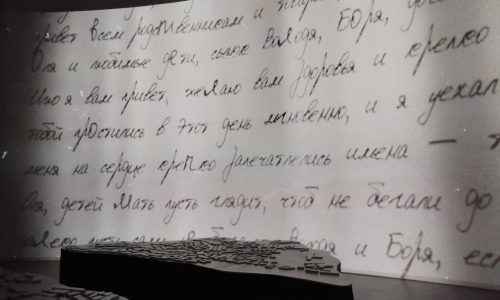 привет всем родственникам и
Оля и любимые дети, сынок Володя, Боря,
Шлю я вам привет, желаю вам здоровья и крепко
тобой простились в этот день мгновенно, и я уехал
меня на сердце крепко запечатлелись имена —
детей Мать пусть глядит, чтоб не бегали до
и Боря,